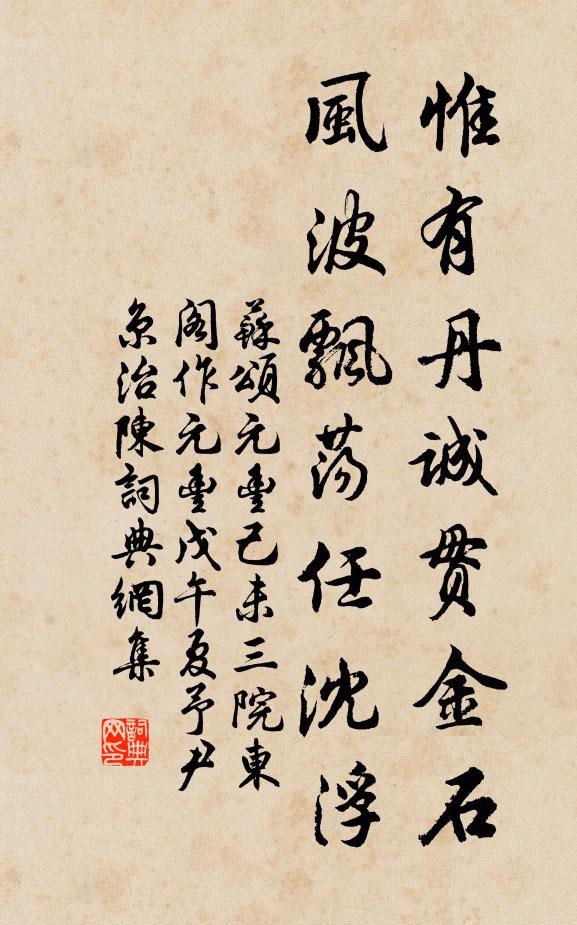 惟有丹誠貫金石
風波飄蕩任沈浮
蘇頌元豐己未三院東
閣作元豐戊午夏予尹
京治陳詞典網集
詞典网印